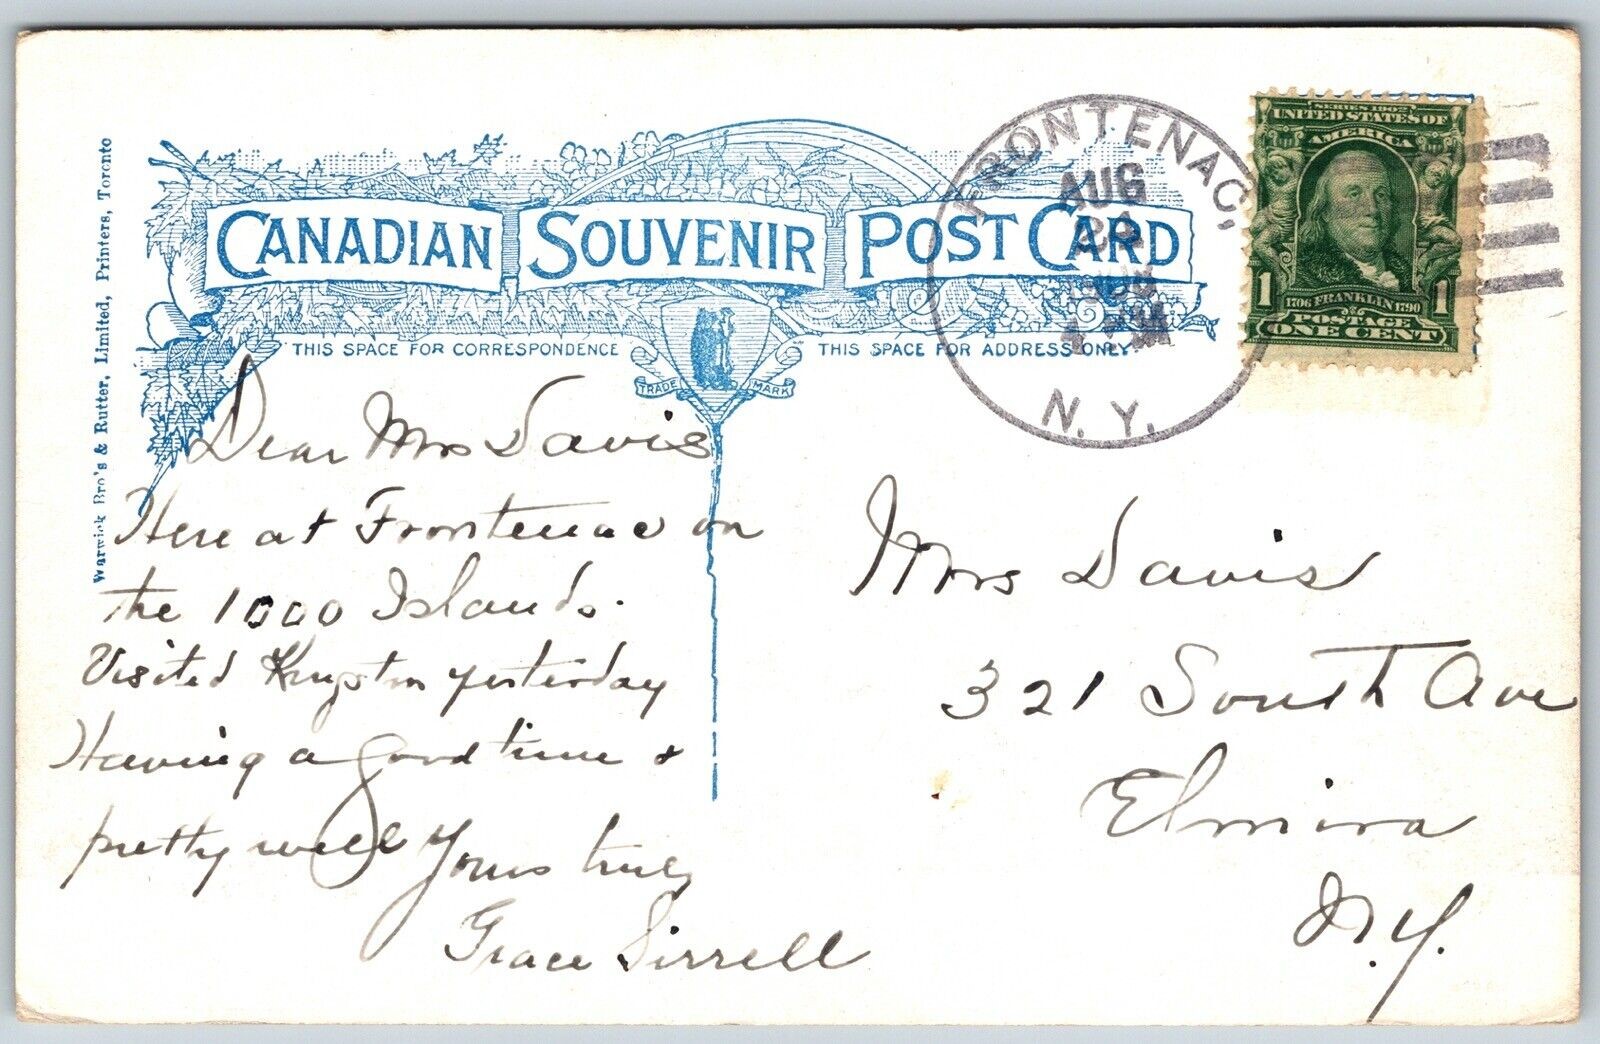 Warwick Bro's & Rutter, Limited, Printers, Toronto
CANADIAN SOUVENIR POST CARD
THIS SPACE FOR CORRESPONDENCE
THIS SPACE FOR ADDRESS ONLY
TRADE MARK
FRONTENAC,
AUG
N.Y.
SERIES 1902
UNITED STATES OF
AMERICA
1 1
1706 FRANKLIN 1790
POSTAGE
ONE CENT
Dear Mrs Davis
Here at Frontenac on
the 1000 Islands.
Visited Kingston yesterday
Having a good time &
pretty well Yours truly
Grace Sirrell
Mrs Davis
321 South Ave
Elmira
N.Y.